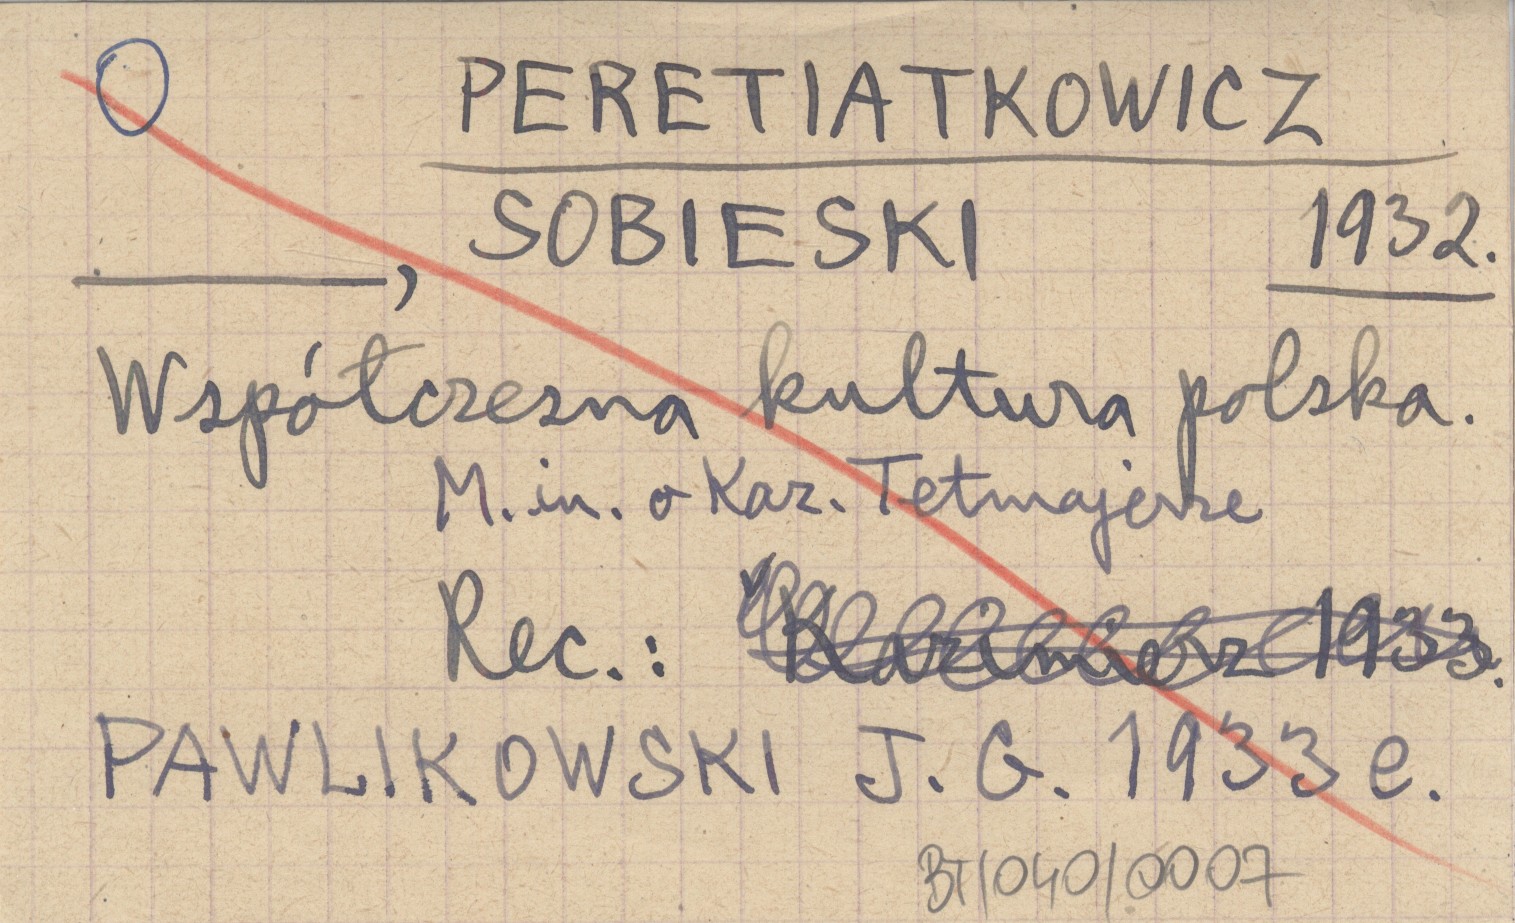 PERETIATKOWICZ
, SOBIESKI 1932.
Współczesna kultura polska.
M. in. o Kaz. Tetmajerze
Rec.: Kazimierz 1933.
PAWLIKOWSKI J. G. 1933 e.
BT/040/0007